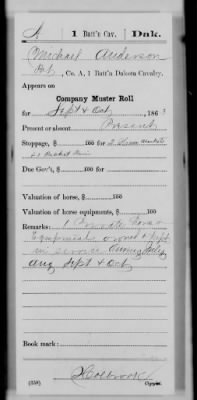 A | 1 Batt'n Cav. | Dak.
Michael Anderson
Pvt, Co. A, 1 Batt'n Dakota Cavalry.
Appears on
Company Muster Roll
for Sept & Oct, 1863
Present or absent Present
Stoppage, $ 100 for
Due Gov't, $ 100 for
Valuation of horse, $ 100
Valuation of horse equipments, $ 100
Remarks: 1 Private horse
Equipments owned & kept
in service during July
Aug Sept & Oct
Book mark:
Holbrook
(358) Copyist.